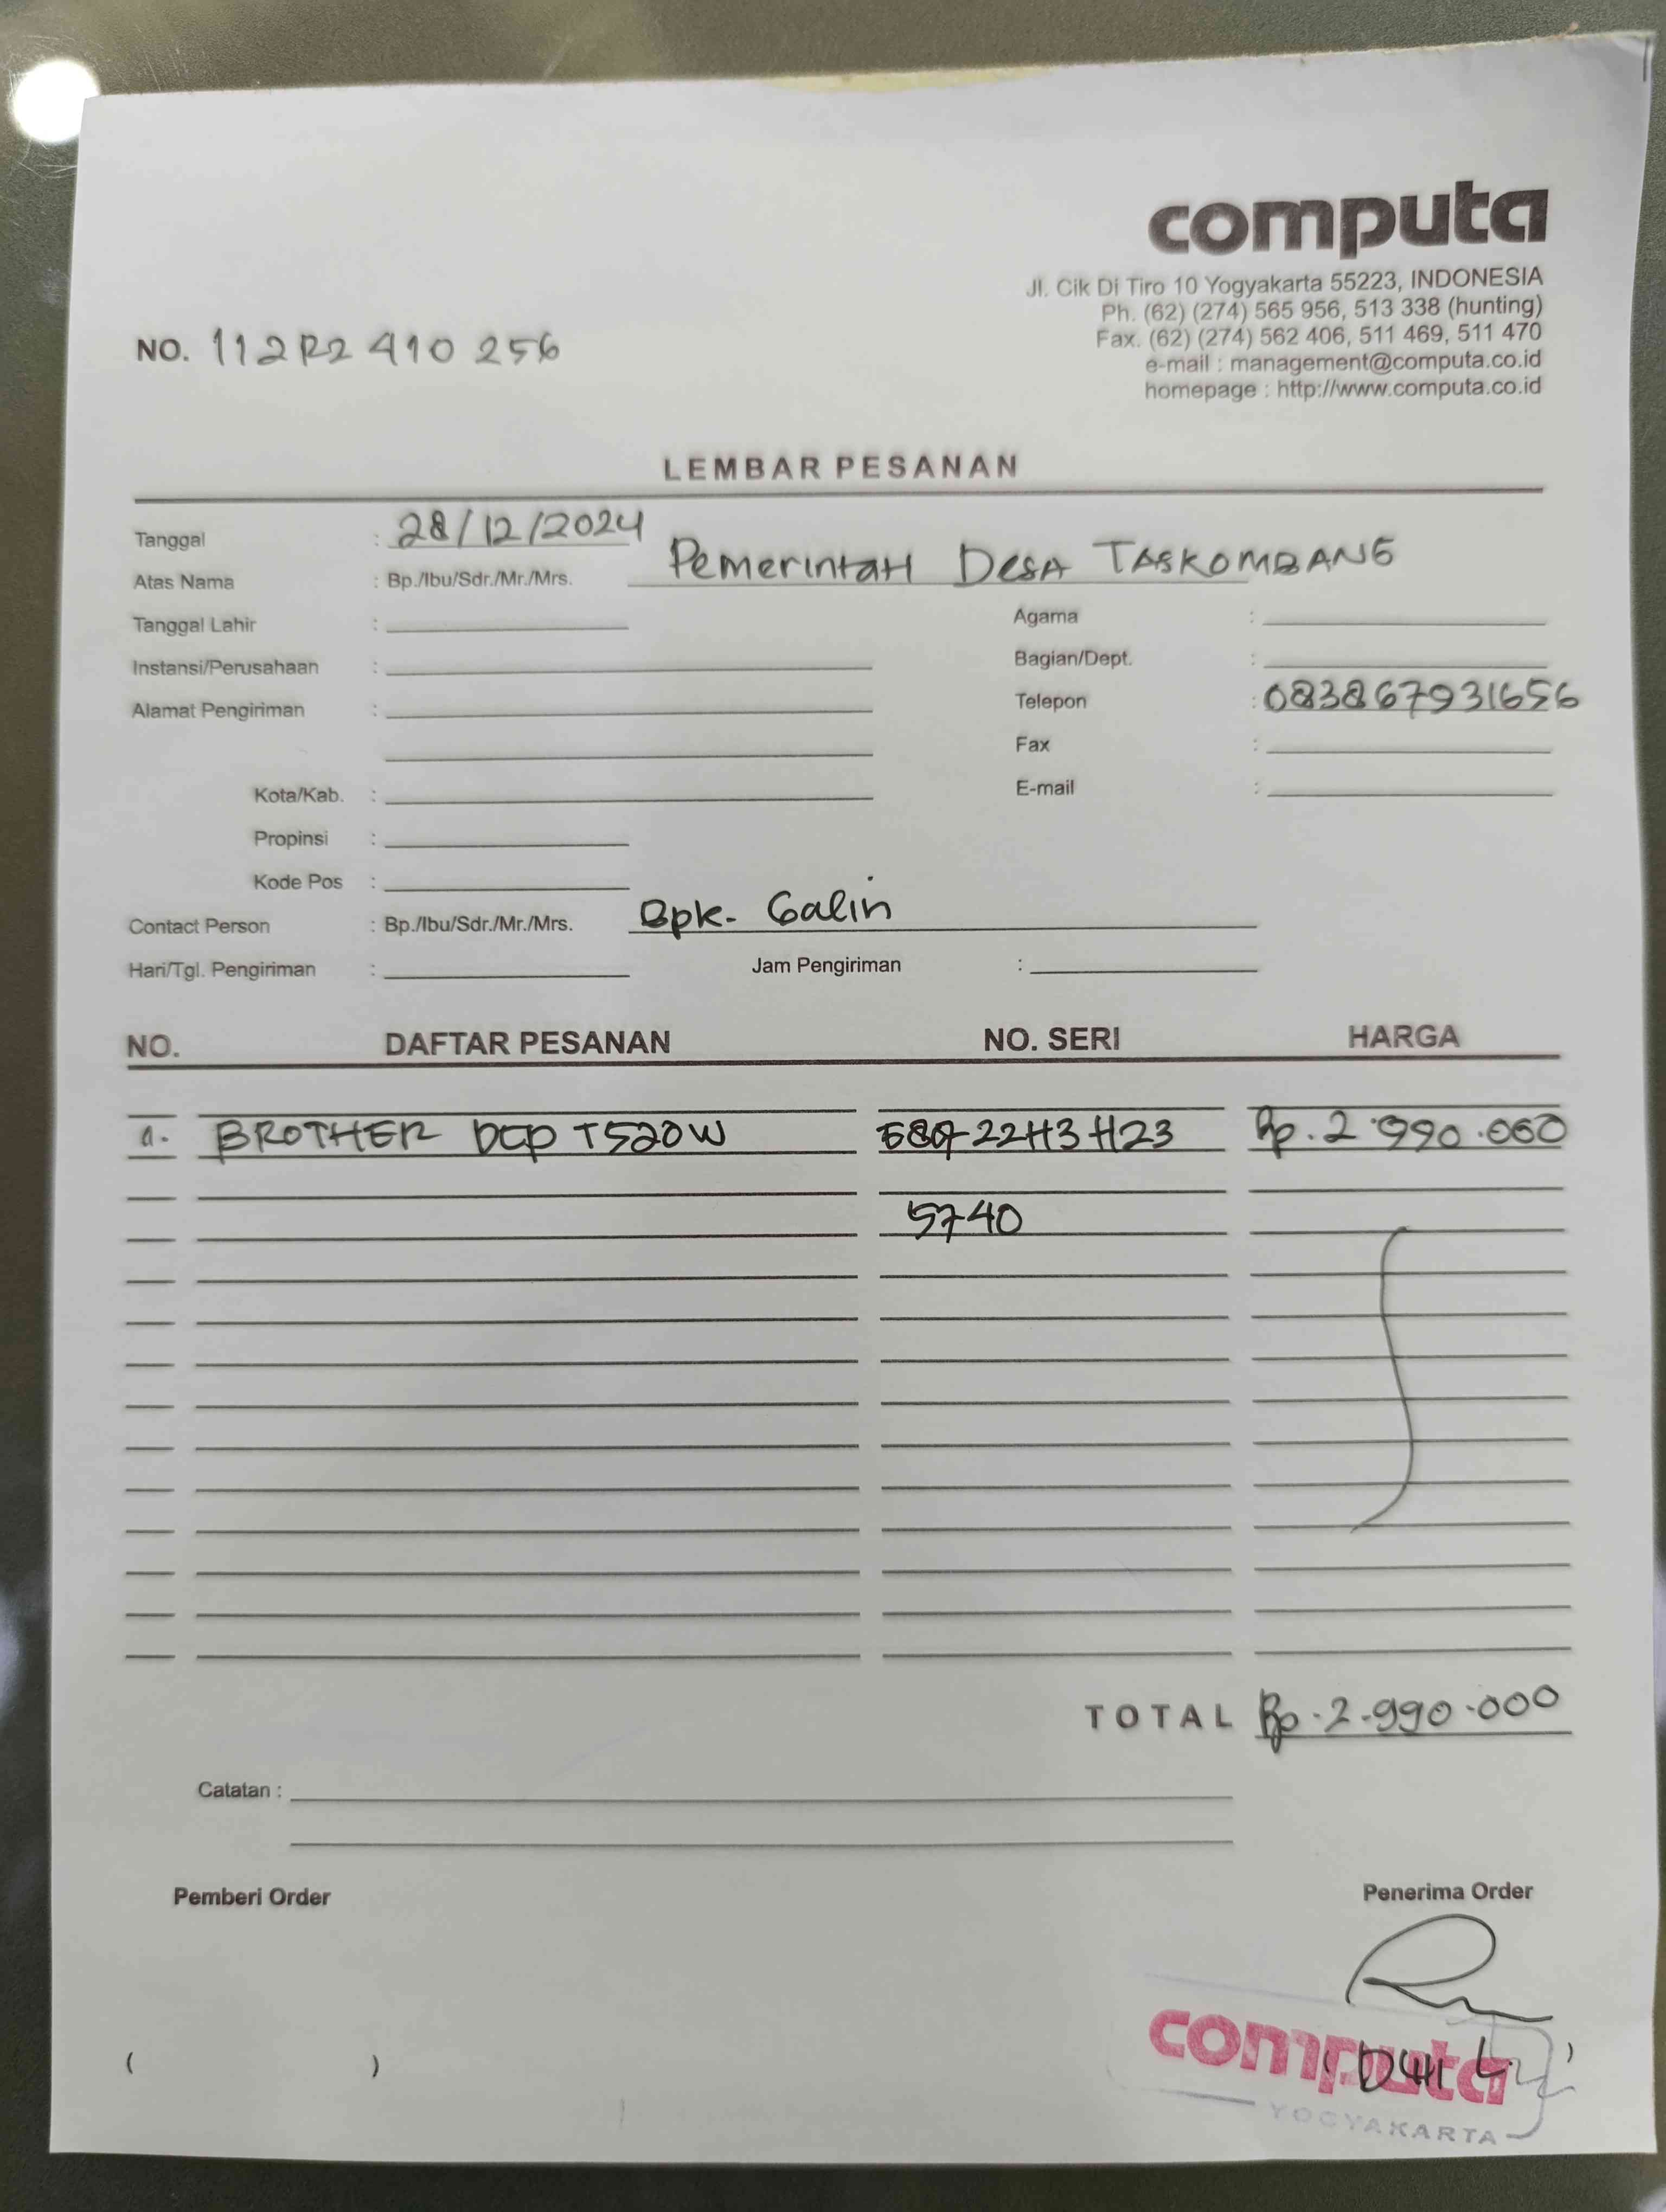 computa
Jl. Cik Di Tiro 10 Yogyakarta 55223, INDONESIA
Ph. (62) (274) 565 956, 513 338 (hunting)
Fax. (62) (274) 562 406, 511 469, 511 470
e-mail : management@computa.co.id
homepage : http://www.computa.co.id
NO. 112R2 410 256
LEMBAR PESANAN
Tanggal : 28/12/2024
Atas Nama : Bp./Ibu/Sdr./Mr./Mrs. Pemerintah Desa TASKOMBANG
Tanggal Lahir : Agama :
Instansi/Perusahaan : Bagian/Dept. :
Alamat Pengiriman : Telepon : 083867931656
Fax :
Kota/Kab. : E-mail :
Propinsi :
Kode Pos :
Contact Person : Bp./Ibu/Sdr./Mr./Mrs. Bpk. Galin
Hari/Tgl. Pengiriman : Jam Pengiriman :
NO. DAFTAR PESANAN NO. SERI HARGA
1. BROTHER DCP T520W 22H3H23 Rp. 2.990.000
5740
TOTAL Rp. 2.990.000
Catatan :
Pemberi Order Penerima Order
( ) ( )
computa
YOGYAKARTA